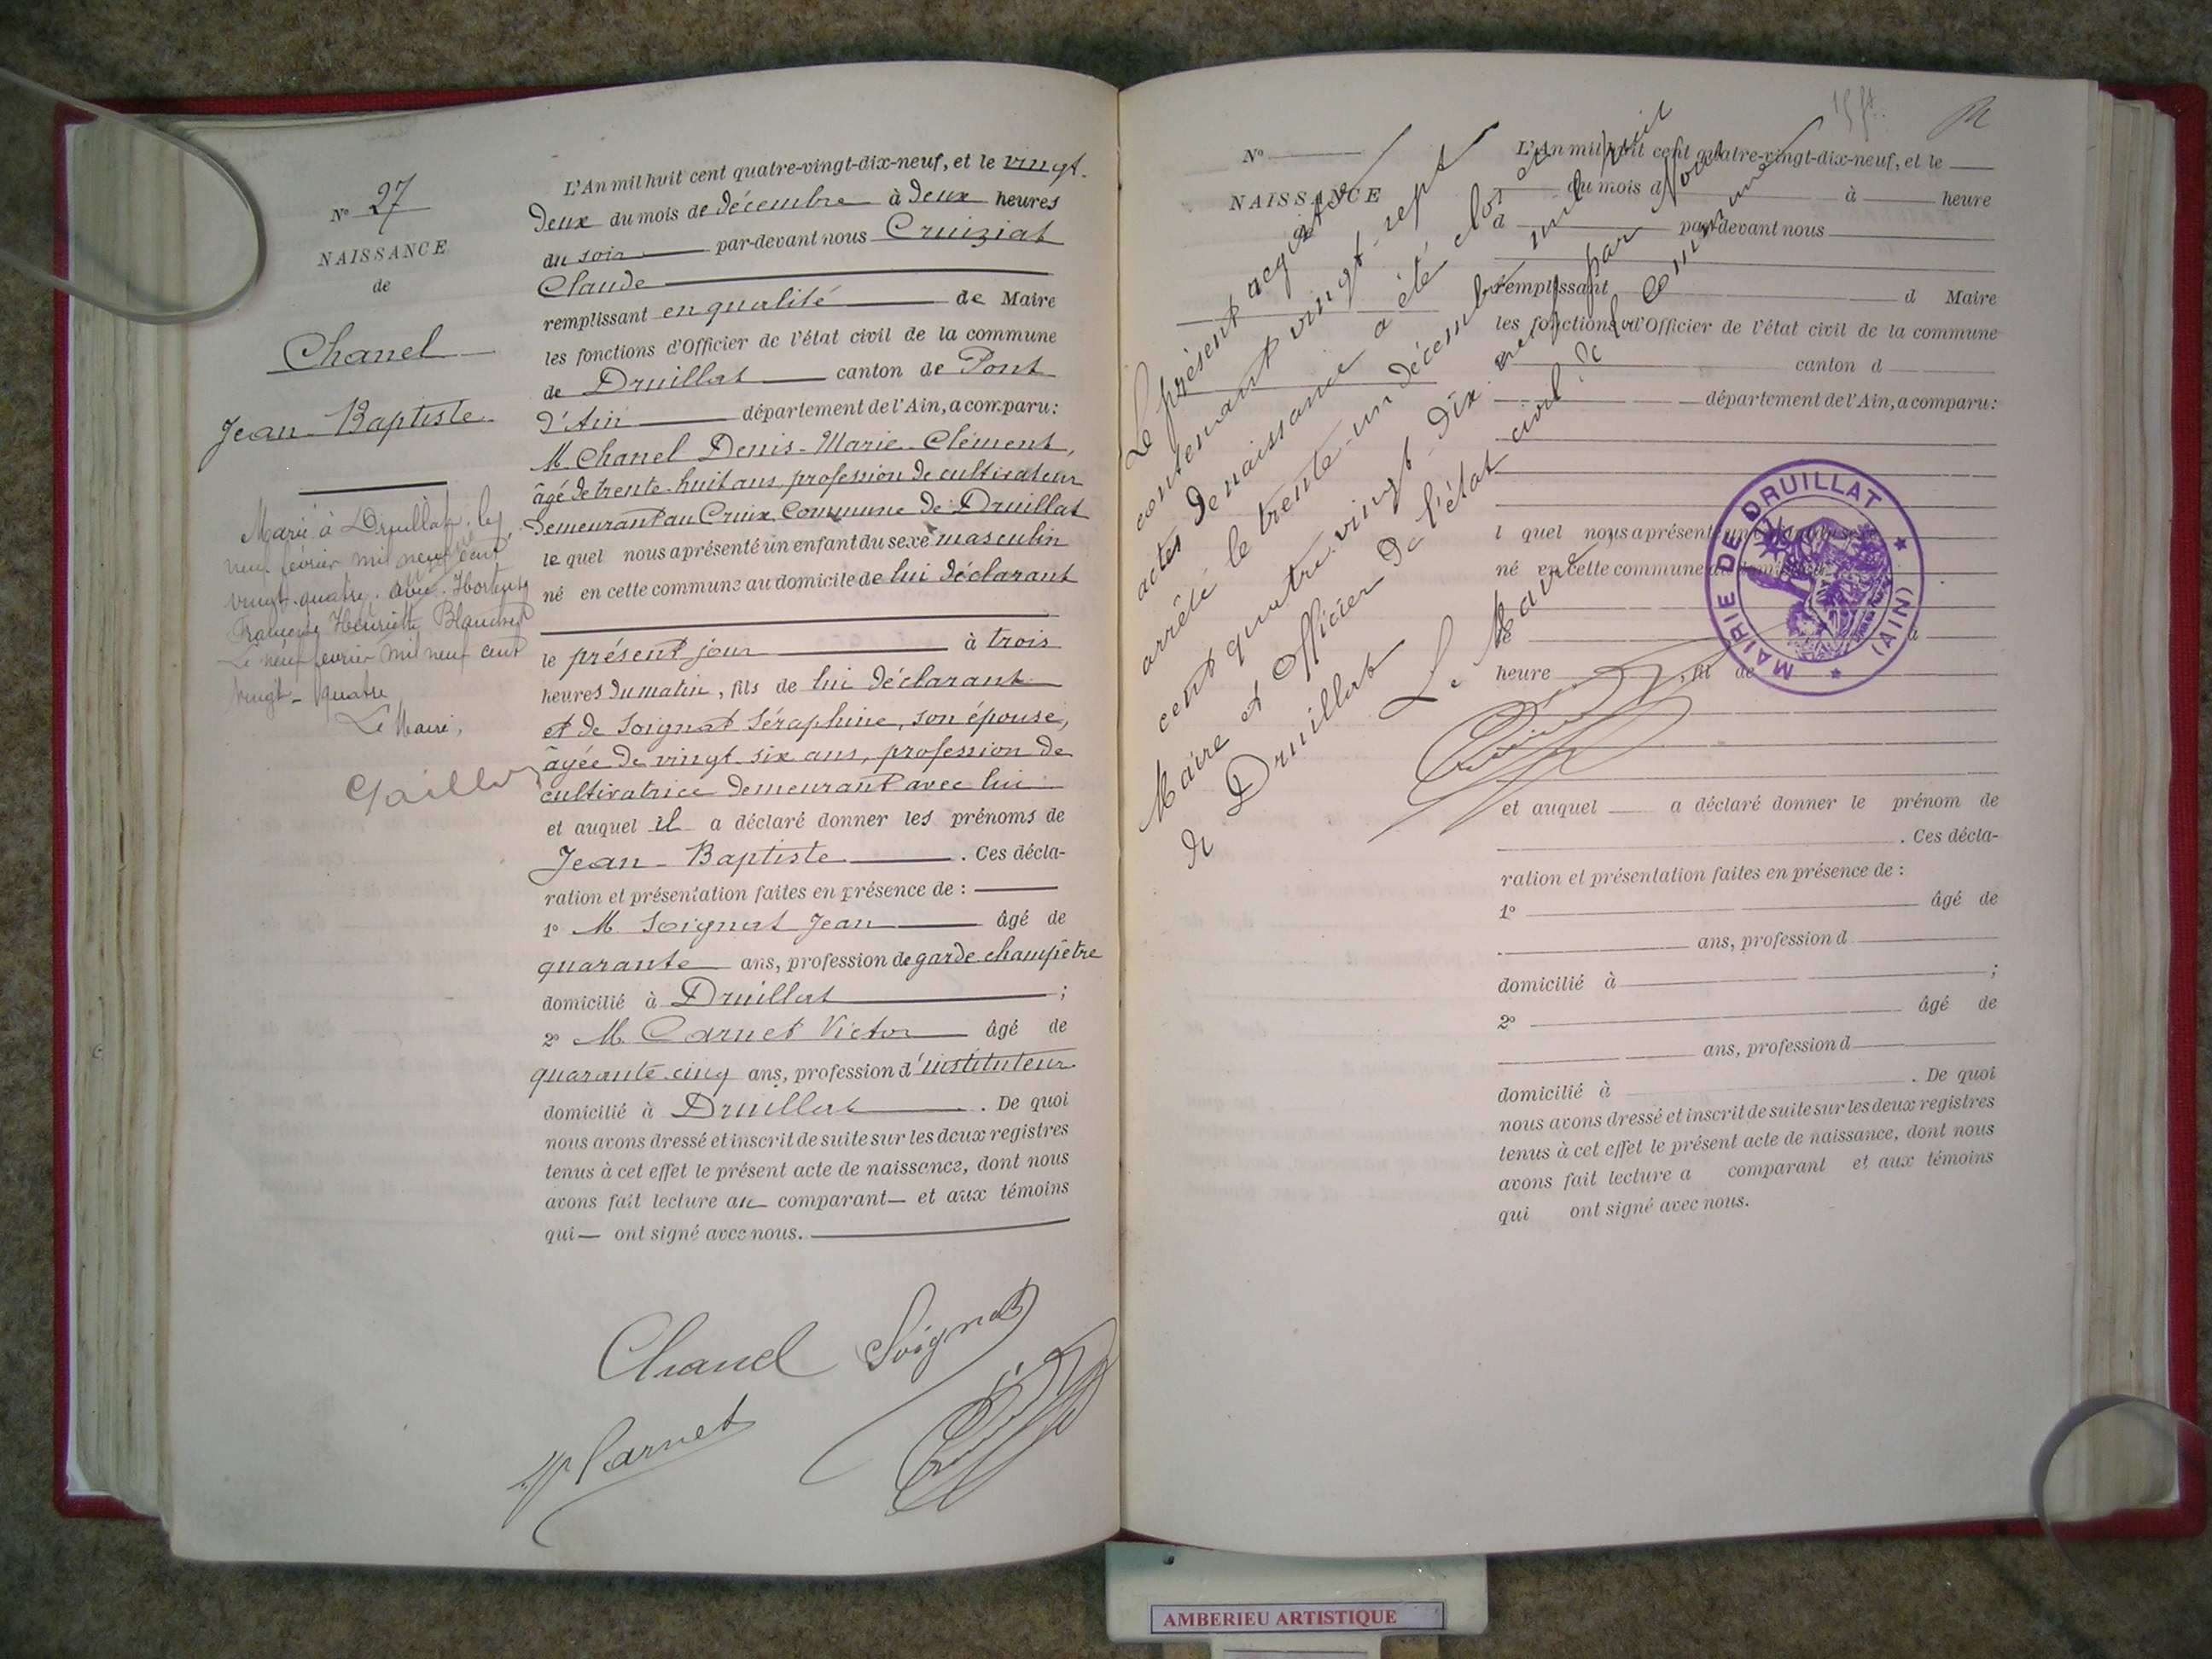 N° 27
NAISSANCE
de
Chanel
Jean-Baptiste
Marié à Druillat, le
neuf février mil neuf cent
vingt-quatre avec Hortense
Françoise Henriette Blanchet
Le neuf février mil neuf cent
vingt-quatre
Le Maire,
L'An mil huit cent quatre-vingt-dix-neuf, et le vingt-
deux du mois de décembre à deux heures
du soir par-devant nous Cruiziat
Claude
remplissant en qualité de Maire
les fonctions d'Officier de l'état civil de la commune
de Druillat canton de Pont
d'Ain département de l'Ain, a comparu:
M. Chanel Denis-Marie-Clément,
âgé de trente-huit ans, profession de cultivateur
demeurant au Cruix, Commune de Druillat
le quel nous a présenté un enfant du sexe masculin
né en cette commune au domicile de lui déclarant
le présent jour à trois
heures du matin, fils de lui déclarant
et de Soignat Séraphine, son épouse,
âgée de vingt-six ans, profession de
cultivatrice demeurant avec lui
et auquel il a déclaré donner les prénoms de
Jean-Baptiste. Ces décla-
ration et présentation faites en présence de :
1° M. Soignat Jean âgé de
quarante ans, profession de garde champêtre
domicilié à Druillat ;
2° M. Carnet Victor âgé de
quarante-cinq ans, profession d'instituteur
domicilié à Druillat. De quoi
nous avons dressé et inscrit de suite sur les deux registres
tenus à cet effet le présent acte de naissance, dont nous
avons fait lecture au comparant et aux témoins
qui ont signé avec nous.
Chanel Soignat
V Carnet
N°
NAISSANCE
Le présent registre
contenant vingt-sept
actes de naissance a été clos et
arrêté le trente-un décembre mil huit
cent quatre-vingt-dix-neuf par Nous
Maire et Officier de l'état civil de la Commune
de Druillat
Le Maire,
L'An mil huit cent quatre-vingt-dix-neuf, et le
du mois d à heure
d par-devant nous
remplissant d Maire
les fonctions d'Officier de l'état civil de la commune
canton d
département de l'Ain, a comparu:
l quel nous a présenté un enfant du sexe
né en cette commune au domicile
le à
heure , fil de
et auquel a déclaré donner le prénom de
. Ces décla-
ration et présentation faites en présence de :
1° âgé de
ans, profession d
domicilié à ;
2° âgé de
ans, profession d
domicilié à . De quoi
nous avons dressé et inscrit de suite sur les deux registres
tenus à cet effet le présent acte de naissance, dont nous
avons fait lecture a comparant et aux témoins
qui ont signé avec nous.
MAIRIE DE DRUILLAT
(AIN)
AMBERIEU ARTISTIQUE